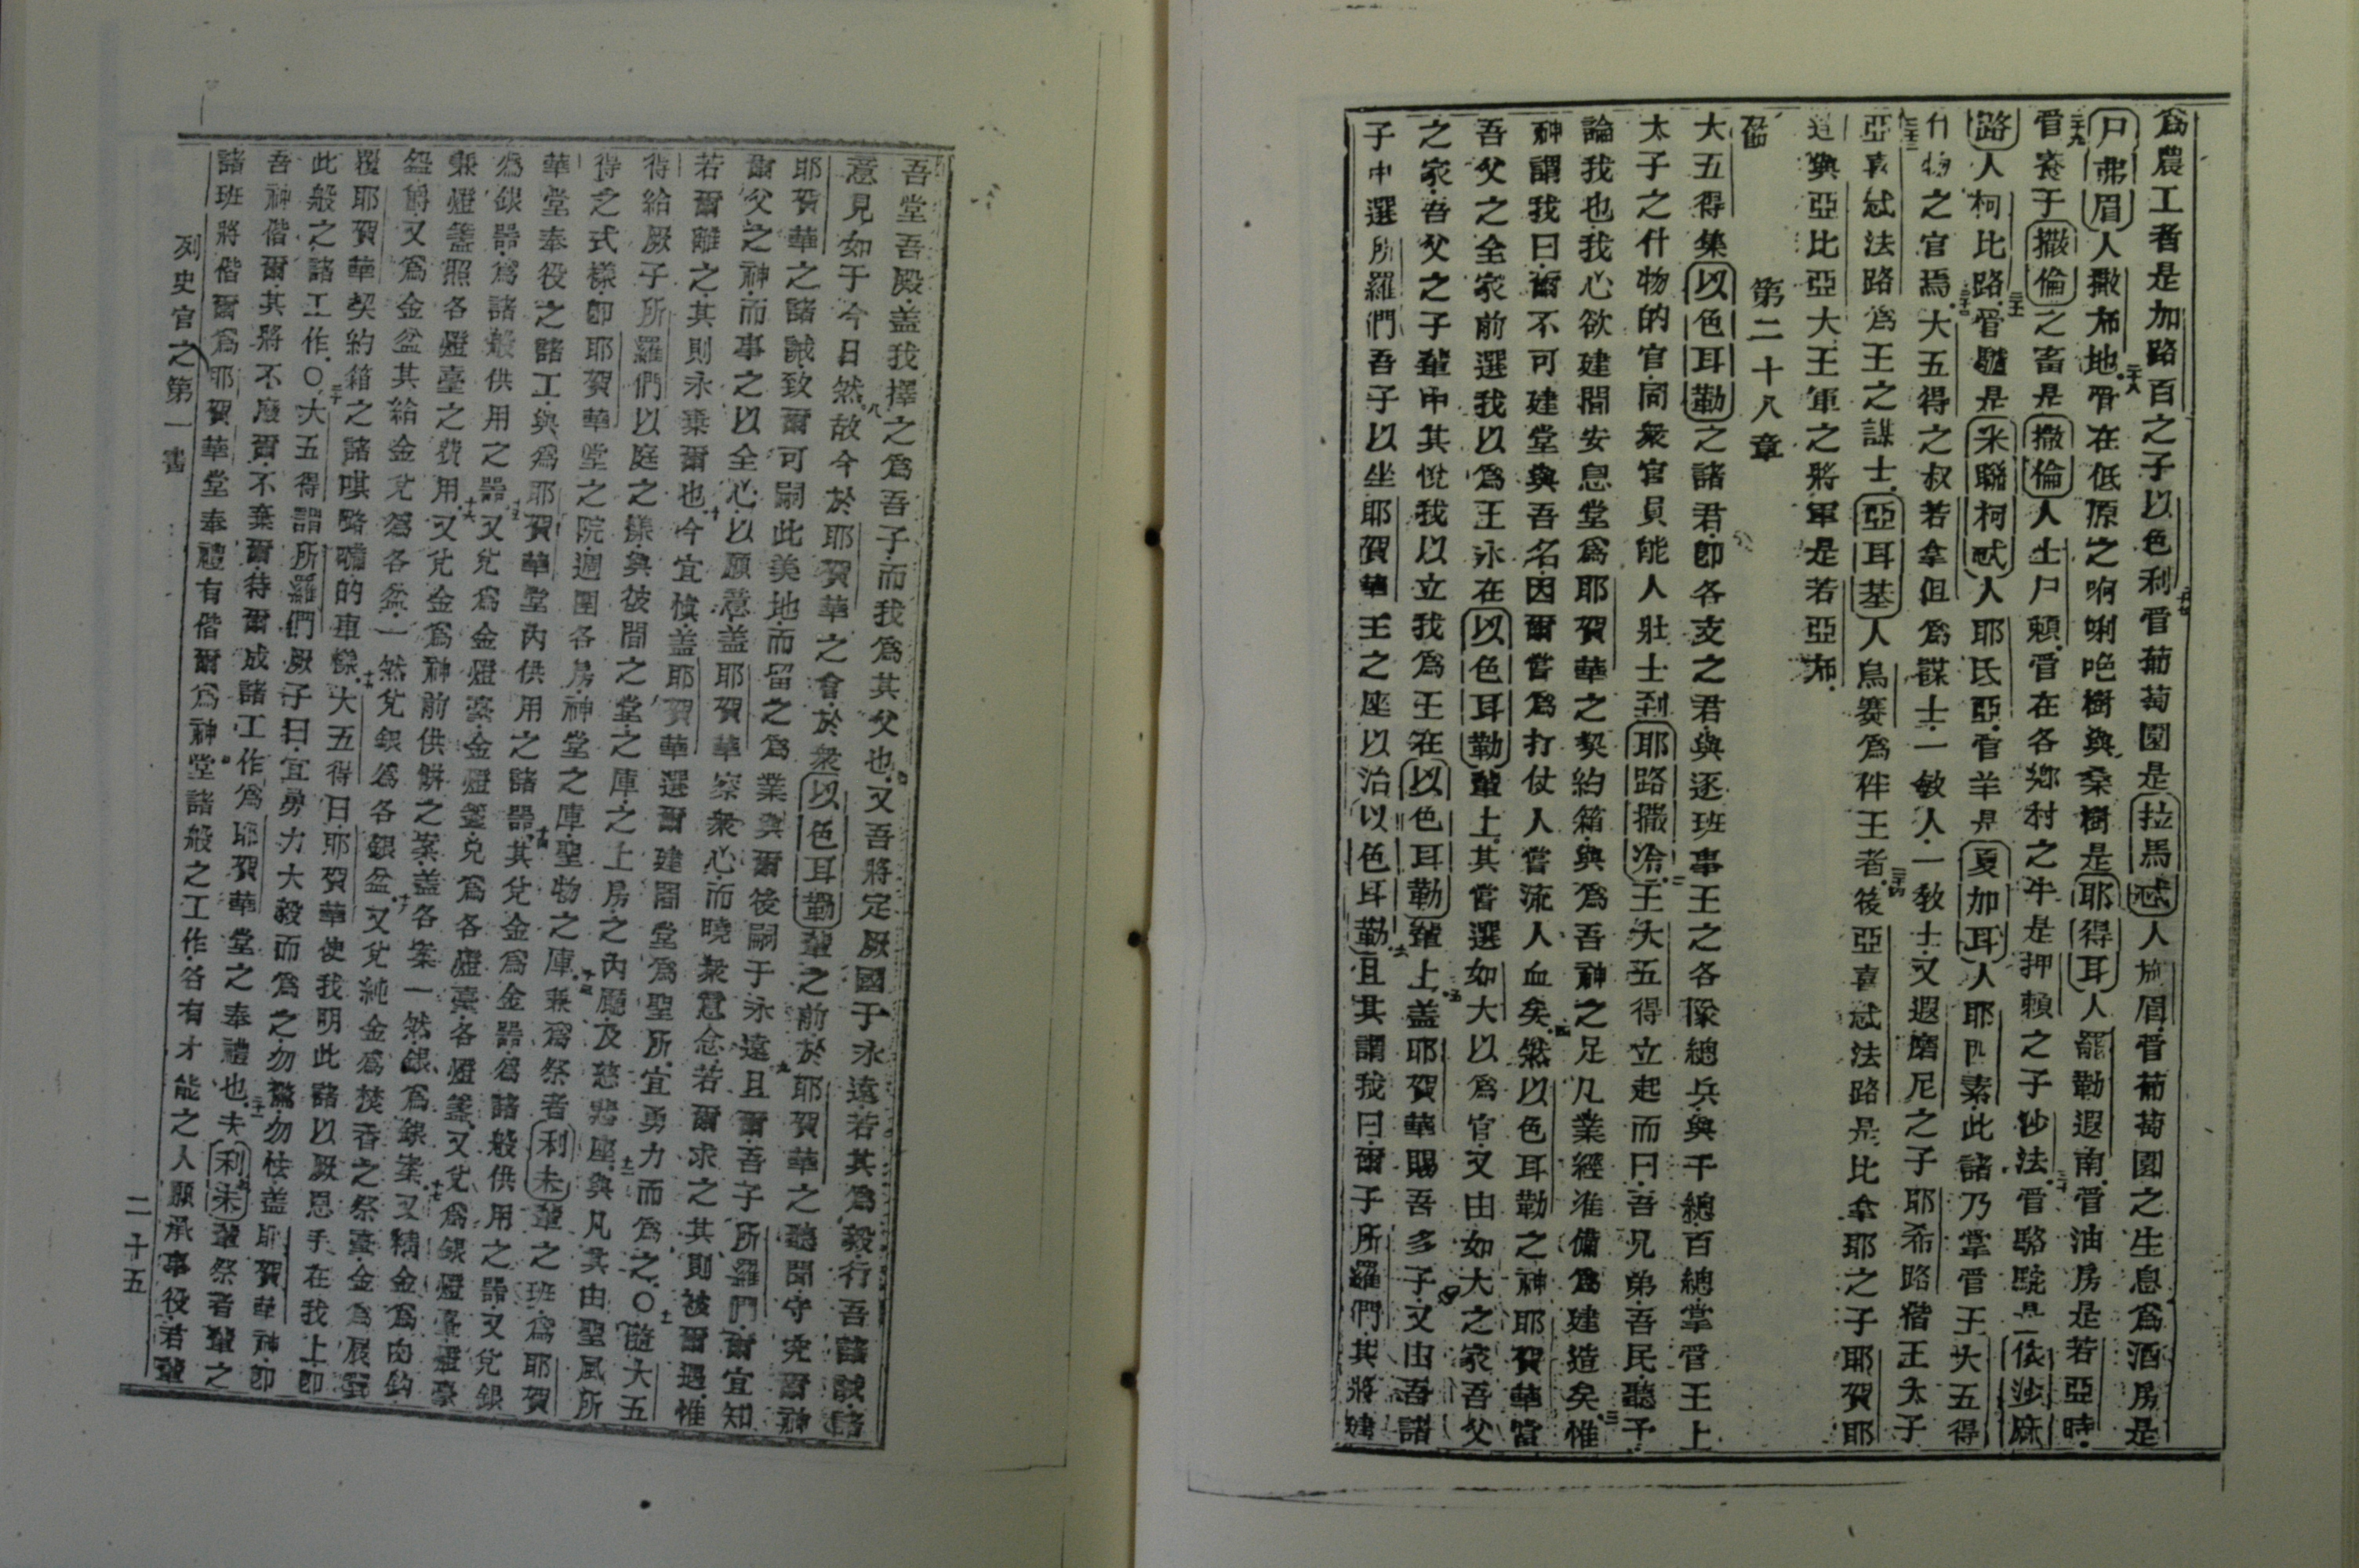 為農工者是加路百之子以色利管葡萄園是拉馬忒人施眉管葡萄園之生息為酒房是
尸弗眉人撒布地管在低原之啊唎吔樹與桑樹是耶得耳人罷勒遐南管油房是若亞時
管養于撒倫之畜是撒倫人士尸賴管在各鄉村之牛是押賴之子沙法管駱駝是依沙麻
路人柯比路管驢是米聯柯忒人耶氏亞管羊是夏加耳人耶匹素此諸乃掌管王大五得
什物之官焉大五得之叔若拿但為謀士一敏人一教士又遐磨尼之子耶希路偕王太子
亞喜忒法路為王之謀士亞耳基人烏賽為伴王者後亞喜忒法路是比拿耶之子耶賀耶
道與亞比亞大王軍之將軍是若亞布
第二十八章
大五得集以色耳勒之諸君即各支之君與逐班事王之各隊總兵與千總百總掌管王上
太子之什物的官同衆官員能人壯士到耶路撒冷王大五得立起而曰吾兄弟吾民聽予
論我也我心欲建間安息堂為耶賀華之契約箱與為吾神之足凡業經准備為建造矣惟
神謂我曰爾不可建堂與吾名因爾嘗為打仗人嘗流人血矣然以色耳勒之神耶賀華當
吾父之全家前選我以為王永在以色耳勒輩上其嘗選如大以為官又由如大之家吾父
之家吾父之子輩中其悅我以立我為王在以色耳勒輩上蓋耶賀華賜吾多子又由吾諸
子中選所羅們吾子以坐耶賀華王之座以治以色耳勒且其謂我曰爾子所羅們其將建
吾堂吾殿蓋我擇之為吾子而我為其父也又吾將定厥國于永遠若其為毅行吾諸誡諸
意見如于今日然故今於耶賀華之會於衆以色耳勒輩之前於耶賀華之聽聞守究爾神
耶賀華之諸誡致爾可嗣此美地而留之為業與爾後嗣于永遠且爾吾子所羅們爾宜知
爾父之神而事之以全心以願意蓋耶賀華察衆心而曉衆意念若爾求之其則被爾遇惟
若爾離之其則永棄爾也今宜慎蓋耶賀華選爾建間堂為聖所宜勇力而為之〇隨大五
得給厥子所羅們以庭之樣與彼間之堂之庫之上房之內廳及慈悲座與凡其由聖風所
得之式樣即耶賀華堂之院週圍各房神堂之庫聖物之庫兼為祭者利未輩之班為耶賀
華堂奉役之諸工與為耶賀華堂內供用之諸器其兌金為金器為諸般供用之器又兌銀
為銀器為諸般供用之器又兌為金燈臺金燈盞兌為各燈臺各燈盞又兌為銀燈臺燈臺
兼燈盞照各燈臺之費用又兌金為神前供餅之案蓋各案一然銀為銀案又精金為肉鈎
盌爵又為金盆其給金兌為各盆一然兌銀為各銀盆又兌純金為焚香之祭臺金為展翼
覆耶賀華契約箱之諸㖿嚕㗲的車樣大五得曰耶賀華使我明此諸以厥恩手在我上即
此般之諸工作〇大五得謂所羅們厥子曰宜勇力大毅而為之勿驚勿怯蓋耶賀華神即
吾神偕爾其將不廢爾不棄爾待爾成諸工作為耶賀華堂之奉禮也夫利未輩祭者輩之
諸班將偕爾為耶賀華堂奉禮有偕爾為神堂諸般之工作各有才能之人願承事役君輩
列史官之第一書
二十五